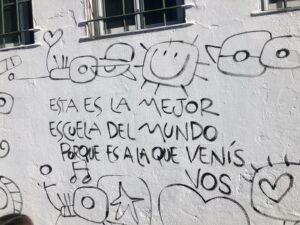 ESTA ES LA MEJOR
ESCUELA DEL MUNDO
PORQUE ES A LA QUE VENÍS
VOS